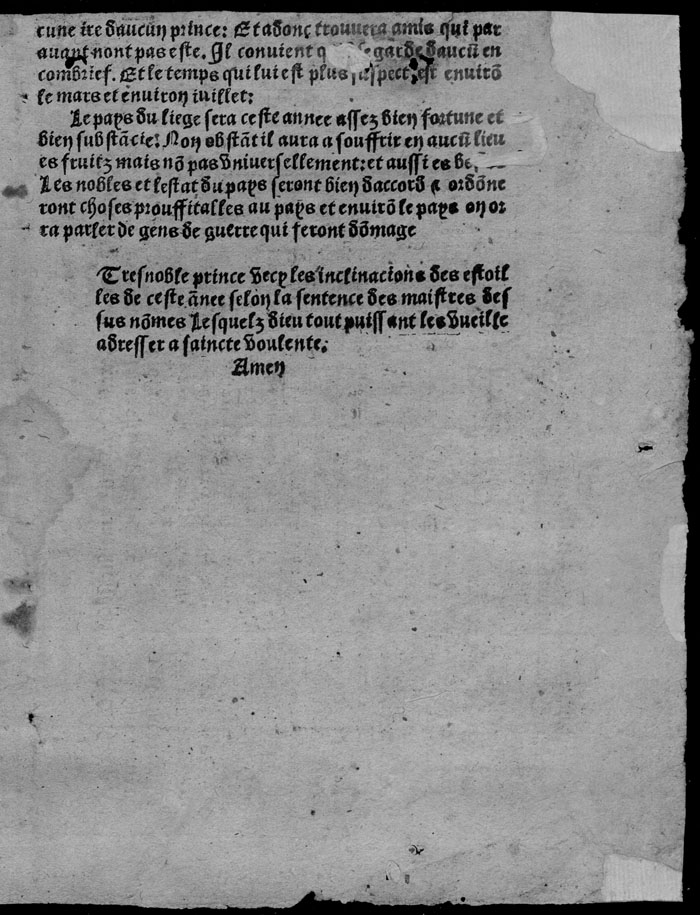 cune ire daucun prince: Et adonc trouvera amis qui par
auant nont pas este. Il convient garde daucū en
combrief. Et le temps qui lui est plus suspect est enuirō
le mars et enuiron iuillet:
Le pays du liege sera ceste annee assez bien fortune et
bien substācie: Non obstāt il aura a souffrir en aucū lieu
es fruitz mais nō pas vniuersellement: et aussi es
Les nobles et lestat du pays seront bien daccord & ordōne
ront choses prouffitalles au pays et enuirō le pays on or
ra parler de gens de guerre qui feront dōmage
Tresnoble prince vecy les inclinacions des estoil
les de ceste ānee selon la sentence des maistres des
sus nōmes Lesquelz dieu tout puissant les vueille
adresser a saincte voulente.
Amen